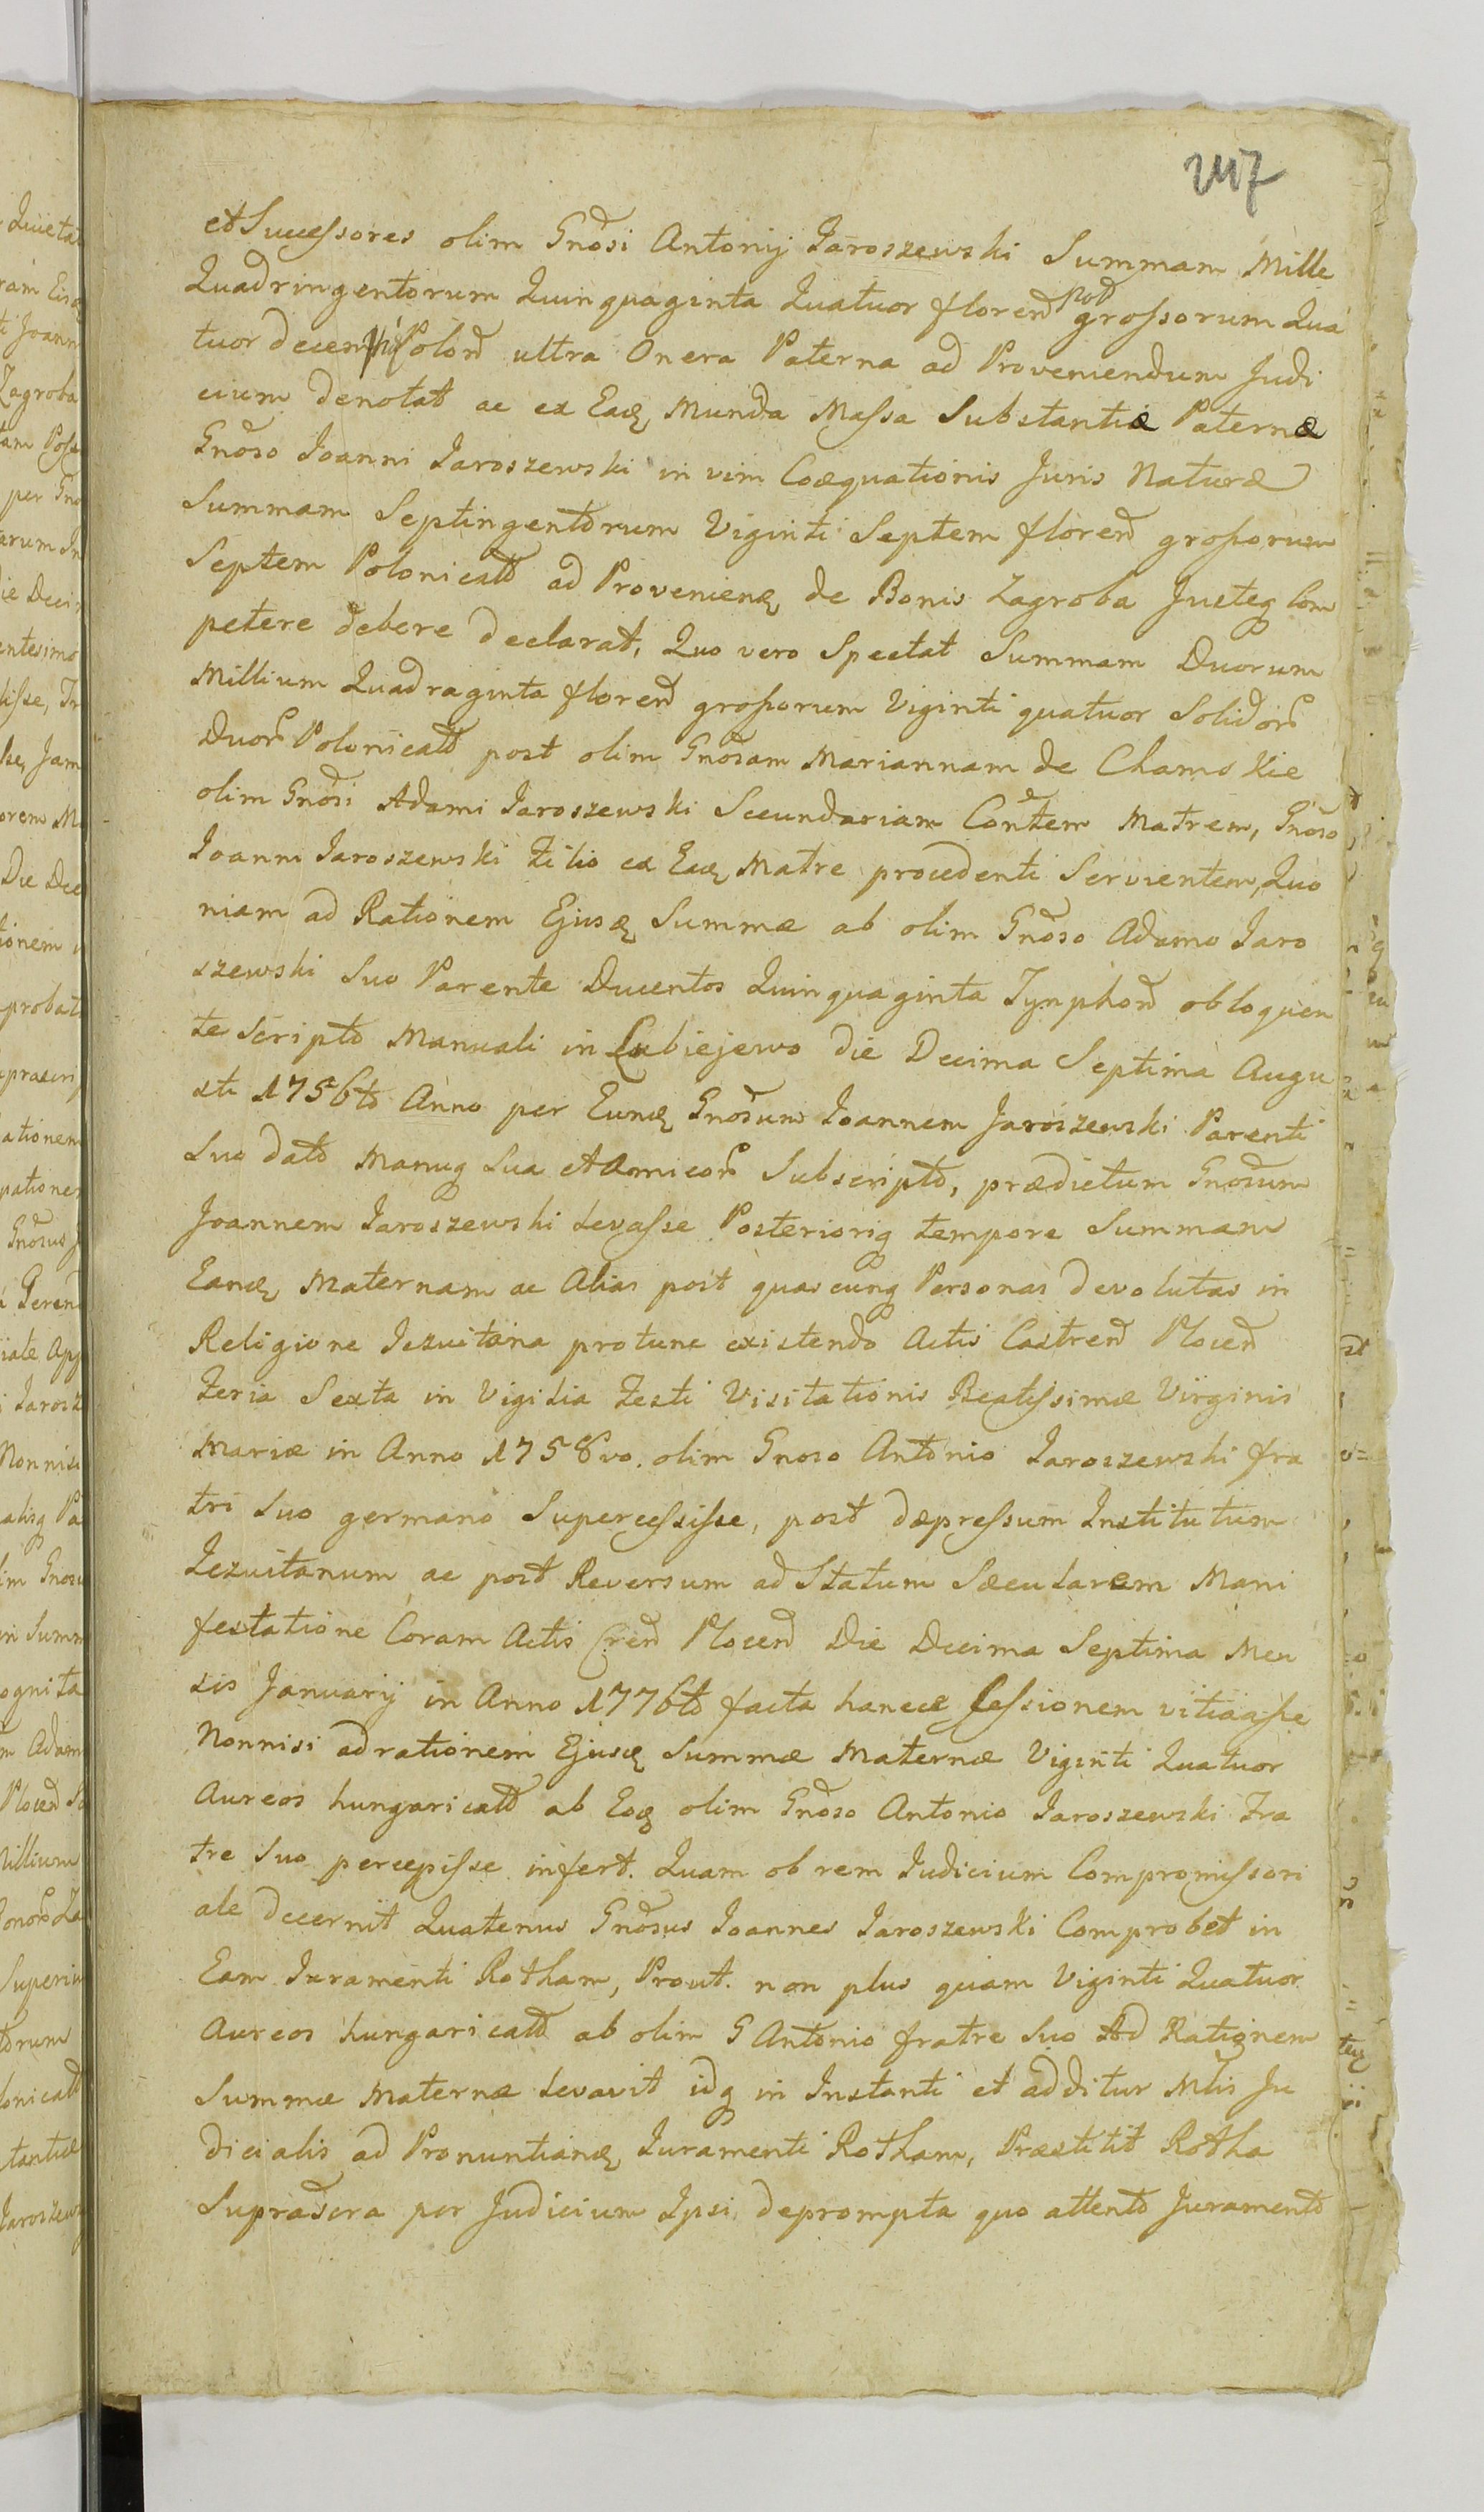 247
et Successores olim Gnõsi Antonij Jaroszewski Summam Mille
Quadringentorum Quinquaginta Quatuor floren̄ pol̄ grossorum Qua
tuor decem Polon̄ ultra Onera Paterna ad Proveniendum Judi
cium denotat ac ex Eaq Munda Massa Substantiæ Paternæ
Gnõso Joanni Jaroszewski in vim Coæquationis Juris Naturæ
Summam Septingentorum Viginti Septem floren̄ grossorum
Septem Polonicatt ad Provenienq de Bonis Zagroba Justeq Com
petere debere declarat, Quo vero Spectat Summam Duorum
Millium Quadraginta floren̄ grossorum Viginti quatuor Solidor̄
Duor̄ Polonicatt post olim Gnõsam Mariannam de Chamskie
olim Gnõsi Adami Jaroszewski Secundariam Con̄tem Matrem, Gnõso
Joanni Jaroszewski Filio ex Eaq Matre procedenti Servientem, Quo
niam ad Rationem Ejusq Summæ ab olim Gnõso Adamo Jaro
szewski Suo Parente Ducentos Quinquaginta Tynphon̄ obloquen
te Scripto Manuali in Lubiejewo die Decima Septima Augu
sti 1756to Anno per Eunq Gnõsum Joannem Jaroszewski Parenti
Suo dato Manuq Sua et Amicor̄ Subscripto, prædictum Gnõsum
Joannem Jaroszewski Levasse Posterioriq tempore Summam
Eanq Maternam ac Alias post quascunq Personas devolutas in
Religione Jezuitana protunc existendo Actis Castren̄ Plocen̄
Feria Sexta in Vigilia Festi Visitationis Beatissimæ Virginis
Mariæ in Anno 1758vo. olim Gnoso Antonio Jaroszewski fra
tri Suo germano Supercessisse, post depressum Institutum
Jezuitanum ac post Reversum ad Statum Sæcularem Mani
festatione Coram Actis Cren̄ Plocen̄ Die Decima Septima Men
sis Januarij in Anno 1776to facta hancce Cessionem vitiasse
Nonnisi ad rationem Ejusq Summæ Maternæ Viginti Quatuor
Aureos hungaricatt ab Eoq olim Gnõso Antonio Jaroszewski Fra
tre Suo percepisse infert. Quam ob rem Judicium Compromissori
ale decernit Quatenus Gnõsus Joannes Jaroszewski Comprobet in
Eam Juramenti Rotham, Prout. non plus quam Viginti Quatuor
Aureos hungaricatt ab olim G Antonio fratre Suo Ad Rationem
Summæ Maternæ Levavit idq in Instanti et additur Mtis Ju
dicialis ad Pronuntianq Juramenti Rotham, Præstitit Rotha
Supra per Judicium Ipsi deprompta quo attento Juramento